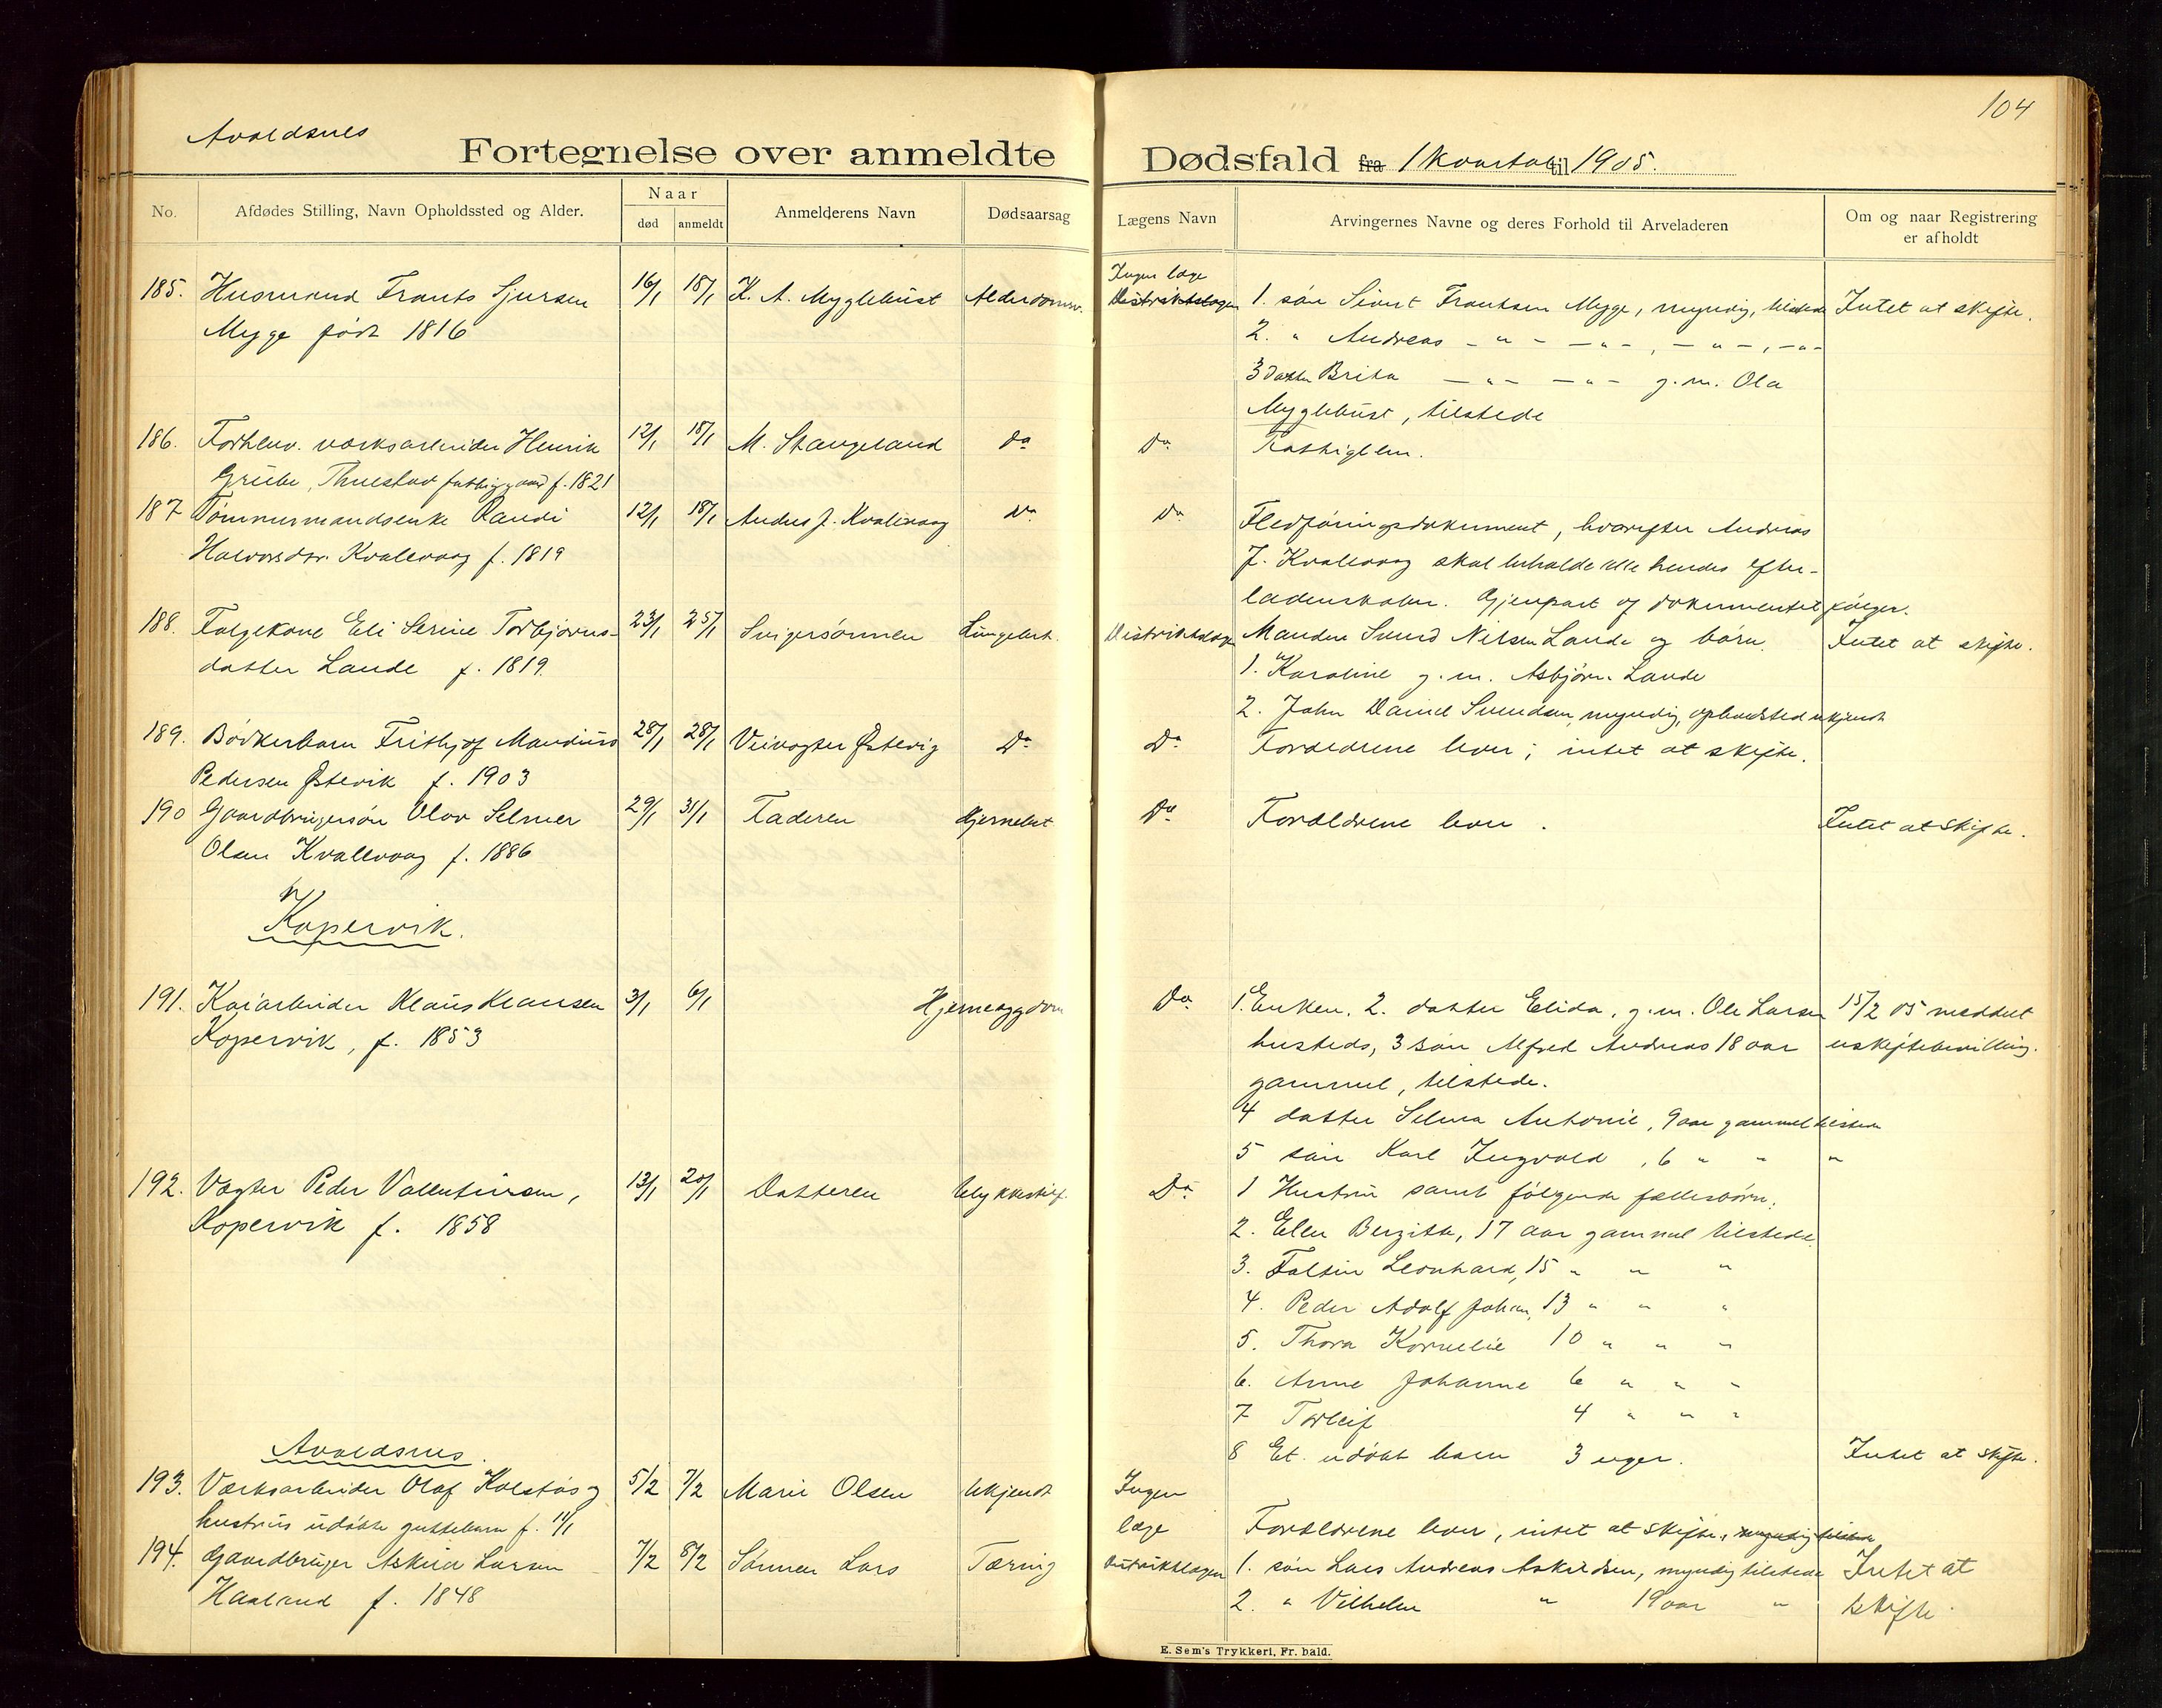 104
Avaldsnes
Fortegnelse over anmeldte Dødsfald fra 1 kvartal til 1905.
No.
Afdødes Stilling, Navn Opholdssted og Alder.
Naar
død
anmeldt
Anmelderens Navn
Dødsaarsag
Lægens Navn
Arvingernes Navne og deres Forhold til Arveladeren
Om og naar Registrering
er afholdt
185. Husmand Frants Sjursen 16/1 18/1 K. A. Myglebust Alderdomsv. Ingen læge Distriktslægen 1. søn Sivert Frantsen Mygge, myndig, tilstede Intet at skifte.
Mygge født 1816 2. " Andreas - " - - " - , - " - , - " -
3 datter Brita - " - - " - g.m. Ola
Myglebust, tilstede
186. Forhenv. værksarbeider Henrik 12/1 18/1 M. Stangeland Do Do Fattiglem.
Grübe, fattiggaard f. 1821
187 Tømmermandsenke Randi 12/1 18/1 Andreas J. Kvalevaag Do Do Fledføringsdokument, hvorefter Andreas
Halvorsdtr. Kvalevaag f. 1819 J. Kvalevaag skal beholde alle hendes efter-
ladenskaber. Gjenpart af dokumentet følger.
188. Følgekone Eli Serine Torbjørns- 23/1 25/1 Svigersønnen Lungebet. Distriktslægen Manden Svend Nilsen Lande og børn. Intet at skifte.
datter Lande f. 1819. 1. Karoline g.m. Asbjørn Lande
2. John Daniel Svendsen, myndig, opholdsted ukjendt
189. Bødkerbarn Frithjof Mandius 28/1 28/1 Veivogter Østevig Do Do Forældrene lever; intet at skifte.
Pedersen Østevik f. 1903
190 Gaardbrugersøn Olav Selmer 29/1 31/1 Faderen Hjernebet Do Forældrene lever. Intet at skifte.
Olsen Kvalevaag f. 1886
Kopervik.
191. Kaiarbeider Klaus Klausen 3/1 6/1 Hjernesygdom Do 1. Enken. 2. datter Elida, g.m. Ole Larsen 15/2 05 meddelt
Kopervik, f. 1853 husteds, 3 søn Alfred Andreas 18 aar uskiftebevilling.
gammel, tilstede.
4 datter Selma Antonie, 9 aar gammel tilstede
5 søn Karl Ingvald, 6 " " "
192. Vægter Peder Valentinsen, 13/1 20/1 Datteren Ulykkestilf. Do 1 Hustru samt følgende fællesbørn:
Kopervik f. 1858 2. Ellen Bergitte, 17 aar gammel tilstede
3. Faltin Leonhard, 15 " " "
4. Peder Adolf Johan, 13 " " "
5. Thora Kornelie 10 " " "
6. Anne Johanne 6 " " "
7 Torleif 4 " " "
8 Et udøbt barn 3 uger. Intet at skifte.
Avaldsnes.
193. Værksarbeider Olaf Kolstøs og 5/2 7/2 Marie Olsen Ukjendt Ingen
hustrus udøbte guttebarn f. 11/1 læge Forældrene lever, intet at skifte, myndig tilstede
194. Gaardbruger Askild Larsen 7/2 8/2 Sønnen Lars Tæring Distriktslægen 1. søn Lars Andreas Askildsen, myndig tilstede Intet at
Haaland f. 1848 2. " Vilhelm " 19 aar " skifte.
E. Sem's Trykkeri, Fr.hald.